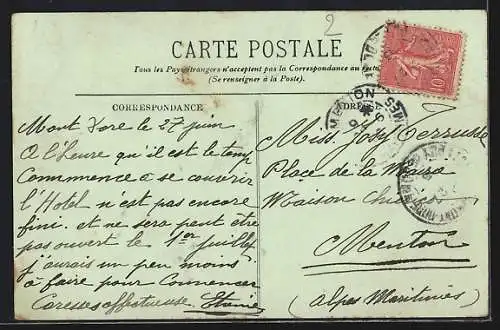 2
CARTE POSTALE
Tous les Pays étrangers n'acceptent pas la Correspondance au recto
(Se renseigner à la Poste).
CORRESPONDANCE
Mont Dore le 27 juin
A l'heure qu'il est le temp
Commence a se couvrir
l'Hotel n'est pas encore
fini. et ne sera peut être
pas ouvert le 1er juillet
j'aurais un peu moins
à faire pour Commencer
Caresses affectueuse.
Miss. Josy
Place de la Mairie
Maison
Menton
(Alpes Maritimes)
MENTON
10